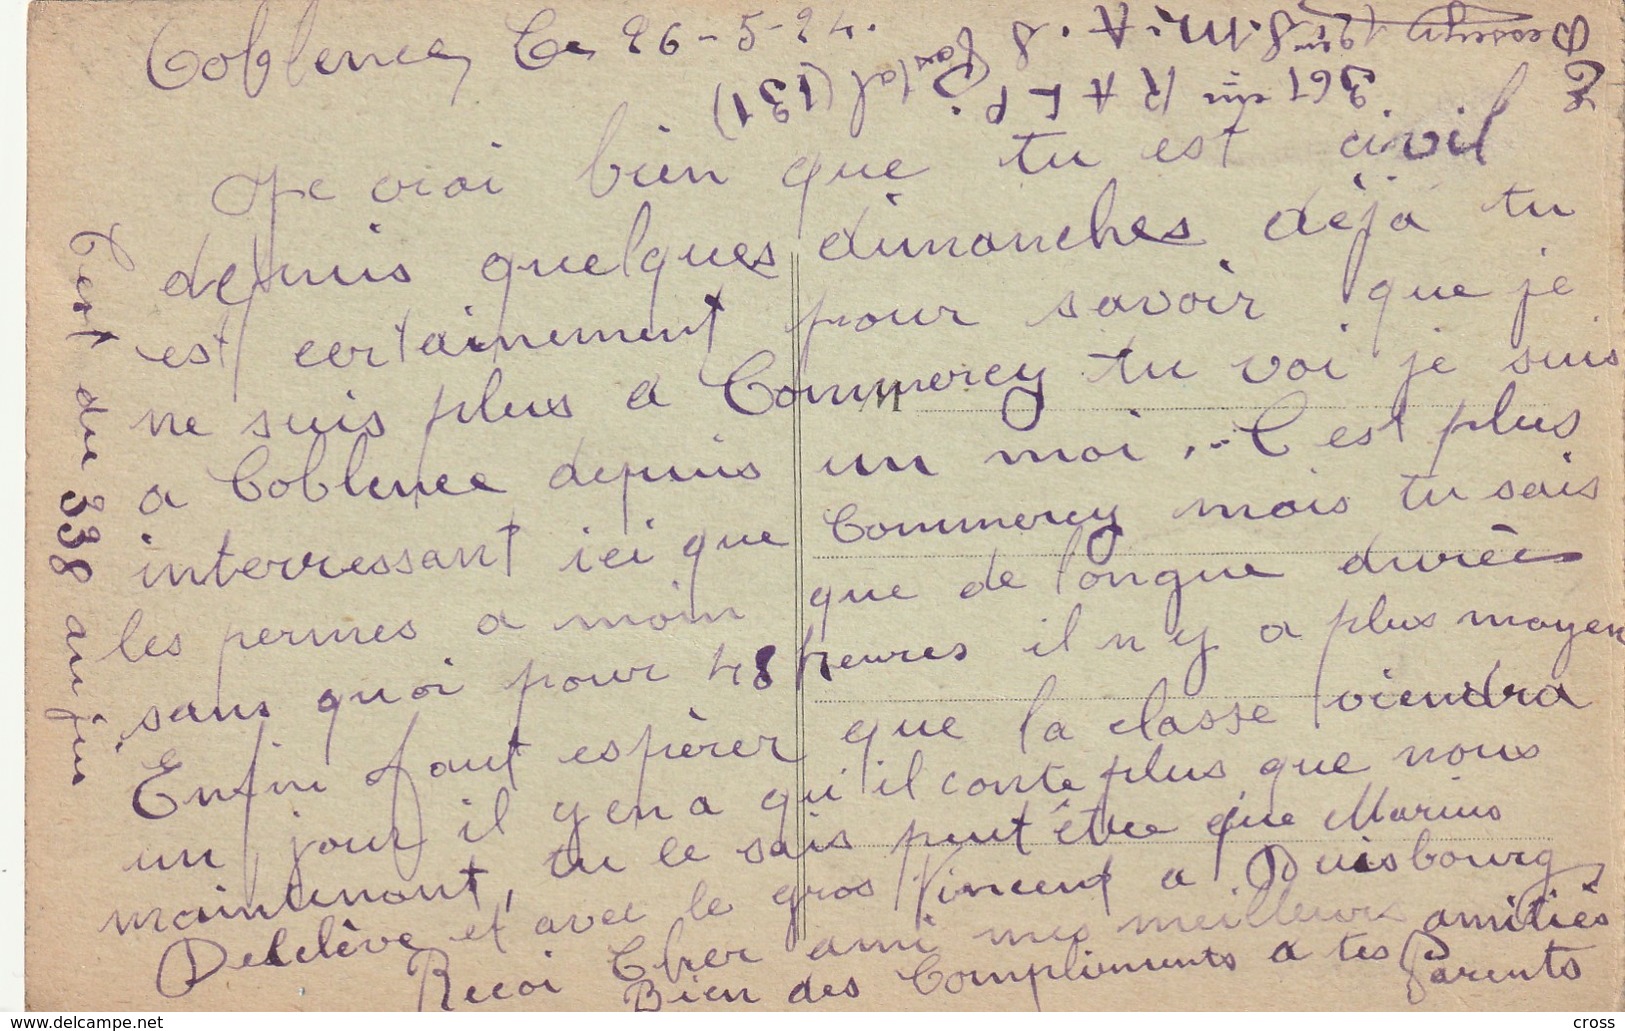 Coblence, le 26-5-24.
Je vrai bien que tu est civil
depuis quelques dimanches déjà tu
est certainement pour savoir que je
ne suis plus a Commercy tu voi je suis
a Coblence depuis un moi. - C'est plus
interressant ici que Commercy mais tu sais
les permes a moin que de longue durées
sans quoi pour 48 heures il n y a plus moyen
Enfin faut espèrer que la classe viendra
un jour il y en a qu'il conte plus que nous
maintenant, tu le sais peut être que Marius
Delclève et avec le gros Vincent a Duisbourg
Recoi Cher ami mes meilleurs amitiés
Bien des Compliments a tes Parents
C'est du 338 au jus
12em S.M.i.A.
361 em R A L P.
Postal (131)
www.delcampe.net
cross